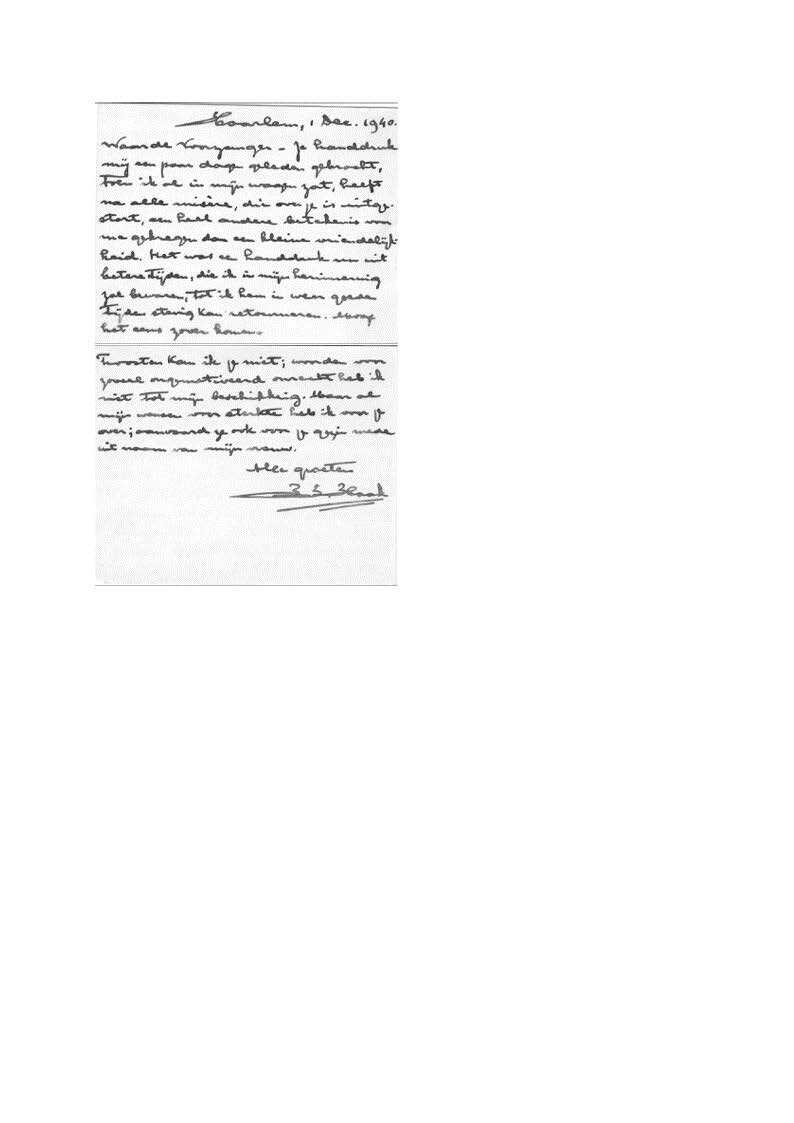 Haarlem, 1 Dec. 1940.
Waarde Voorganger - Je handdruk
mij een paar dagen geleden gebracht,
toen ik al in mijn wagen zat, heeft
na alle misère, die over je is uitge-
stort, een heel andere betekenis voor
me gekregen dan een kleine vriendelijk-
heid. Het was een handdruk nu uit
betere tijden, die ik in mijn herinnering
zal bewaren, tot ik hem in weer goede
tijden stevig kan retourneren. Moog
het eens zover komen.
Troosten kan ik je niet; woorden voor
zoveel ongemotiveerd onrecht heb ik
niet tot mijn beschikking. Maar al
mijn wensen voor sterkte heb ik voor je
over; aanvaard ze ook voor je gezin mede
uit naam van mijn vrouw.
Alle groeten